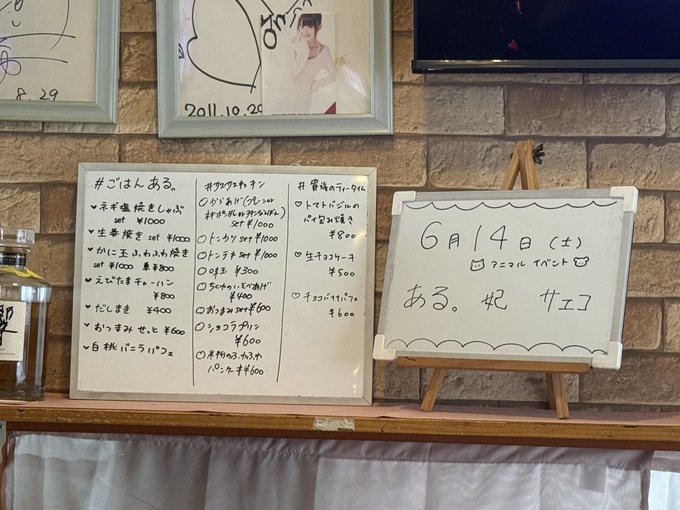 8.29
2011.10.29
#ごはんある。
♥ ネギ塩焼きしゃぶ
set ¥1000
♥ 生姜焼き set ¥1000
♥ かに玉ふわふわ焼き
set ¥1000 単 ¥800
♥ えびたまチャーハン
¥800
♥ だしまき ¥400
♥ おつまみせっと ¥600
♥ 白桃バニラパフェ
○ からあげ(プレーンor
set ¥1000
○ トンカツ set ¥1000
○ トンテキ set ¥1000
○ 味玉 ¥300
○ ちくわのいそべあげ
¥400
○ おつまみ set ¥600
○ ショコラプリン
¥600
○ 米粉のふわふわ
パンケーキ ¥600
# 貴族のティータイム
♥ トマトバジルの
パイ包み焼き
¥800
♥ 生チョコケーキ
¥500
♥ チョコバナナパフェ
¥600
6月14日(土)
アニマルイベント
ある。妃 サエコ
響